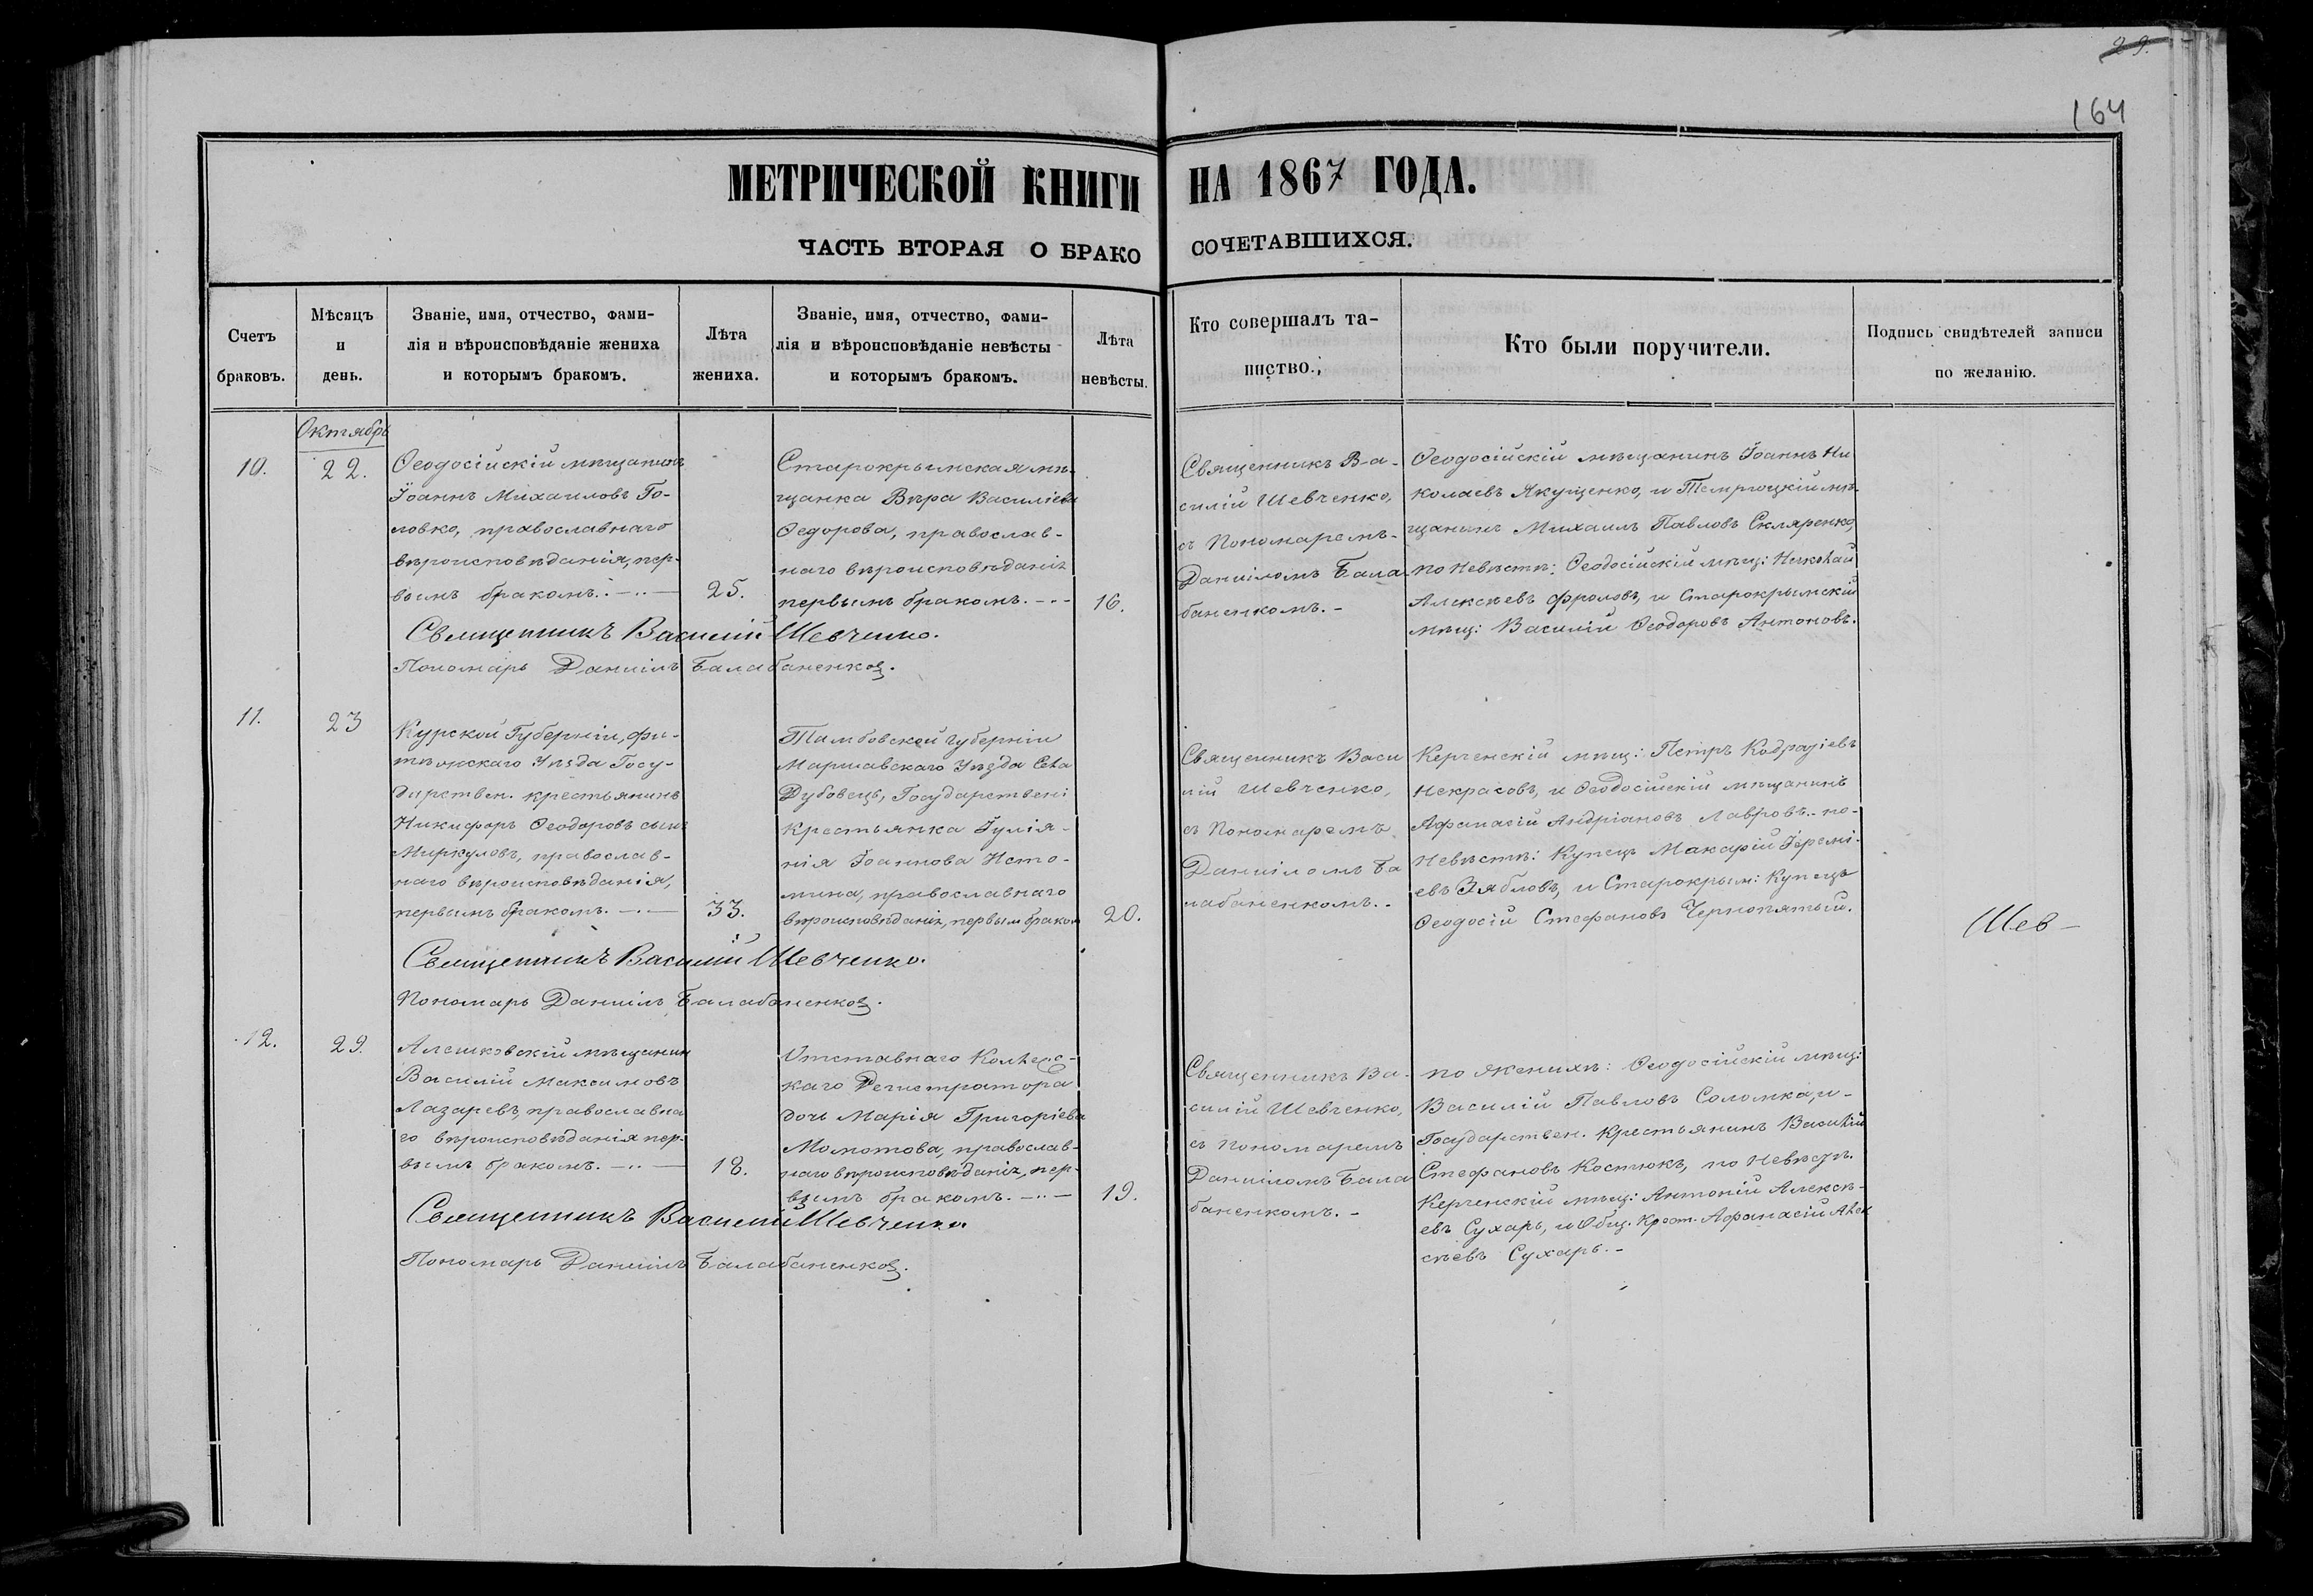 29.
164
МЕТРИЧЕСКОЙ КНИГИ НА 1867 ГОДА.
ЧАСТЬ ВТОРАЯ О БРАКОСОЧЕТАВШИХСЯ.
Счетъ
браковъ.
Мѣсяцъ
и
день.
Званіе, имя, отчество, фами-
лія и вѣроисповѣданіе жениха
и которымъ бракомъ.
Лѣта
жениха.
Званіе, имя, отчество, фами-
лія и вѣроисповѣданіе невѣсты
и которымъ бракомъ.
Лѣта
невѣсты.
Кто совершалъ та-
инство.
Кто были поручители.
Подпись свидѣтелей записи
по желанію.
Октябрь
10.
22.
Ѳеодосійскій мѣщанинъ
Іоаннъ Михаиловъ Го-
ловко, православнаго
вѣроисповѣданія, пер-
вымъ бракомъ.
25.
Старокрымская мѣ-
щанка Вѣра Василіева
Ѳедорова, православ-
наго вѣроисповѣданія
первымъ бракомъ.
16.
Священникъ Ва-
силій Шевченко,
съ Пономаремъ-
Даніиломъ Бала
баненкомъ.-
Ѳеодосійскій мѣщанинъ Іоаннъ Ни
колаевъ Якущенко, и Темрюцкій мѣ-
щанинъ Михаилъ Павловъ Скляренко,
по Невѣстѣ: Ѳеодосійскій мѣщ: Николай
Алексѣевъ Фроловъ, и Старокрымскій
мѣщ: Василій Ѳеодоровъ Антоновъ.
Священникъ Василій Шевченко.
Пономарь Даніилъ Балабаненковъ.
11.
23
Курской Губерніи, Фа-
тѣжскаго Уѣзда Госу-
дарствен. крестьянинъ
Никифоръ Ѳеодоровъ сынъ
Миркуловъ, православ-
наго вѣроисповѣданія,
первымъ бракомъ.
33.
Тамбовской губерніи
Маршавскаго Уѣзда Села
Дубовецъ, Государствені
крестьянка Іулія-
нія Іоаннова Исто-
мина, православнаго
вѣроисповѣданія, первым браком
20.
Священникъ Васи
лій Шевченко,
съ Пономаремъ
Даніиломъ Ба
лабаненкомъ.-
Керченскій мѣщ: Петръ Кодратіевъ
Некрасовъ, и Ѳеодосійскій мѣщанинъ
Афанасій Андріановъ Лавровъ.- по-
Невѣстѣ: Купецъ Макарій Іеремі-
евъ Зябловъ, и Старокрым: Купецъ
Ѳеодосій Стефановъ Чернопятый.
Шев-
Священникъ Василій Шевченко.
Пономарь Даніилъ Балабаненковъ.
12.
29.
Алешковскій мѣщанин
Василій Максимовъ
Лазаревъ, православна
го вѣроисповѣданія пер-
вымъ бракомъ.
18.
Отставнаго Коллегс-
каго Регистратора
дочь Марія Григоріева
Момотова, православ-
наго вѣроисповѣданія, пер-
вымъ бракомъ.
19.
Священникъ Ва-
силій Шевченко,
съ пономаремъ
Даніиломъ Бала
баненкомъ.-
по Женихѣ: Ѳеодосійскій мѣщ:
Василій Павловъ Соломка, и-
Государствен. крестьянинъ Василій
Стефановъ Костюкъ, по Невѣстѣ.
Керченскій мѣщ: Антоній Алексѣ-
евъ Сухарь, и Общ. Крест. Афанасій Алек
сѣевъ Сухарь.-
Священникъ Василій Шевченко.
Пономарь Даніилъ Балабаненковъ.